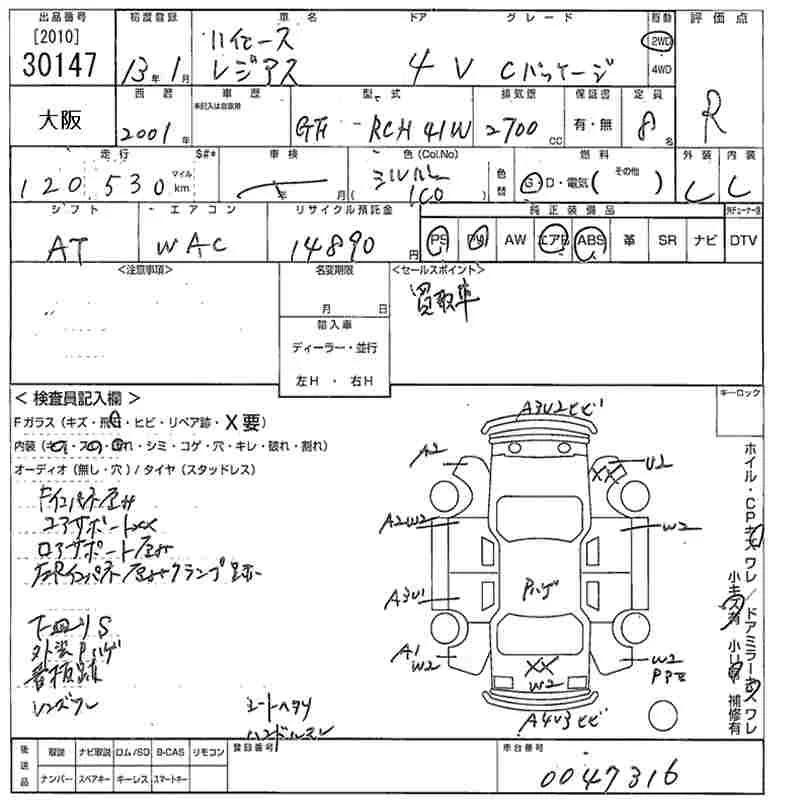 出品番号 初度登録 車名 ドア グレード 駆動 評価点
[2010]
30147
13年1月
ハイエース
レジアス
4 V Cパッケージ
2WD
4WD
R
大阪
西暦 車歴 型式 排気量 保証書 定員
未記入は自家用
2001年
GF - RCH41W
2700cc
有・無
8名
走行 $#* 車検 色(Col.No) 燃料 外装 内装
120,530 マイル km
年 月
シルバー
(1C0)
色替
G・D・電気( その他 )
シフト エアコン リサイクル預託金 純正装備品
AT WAC 14890円
PS PW AW エアB ABS 革 SR ナビ DTV
<注意事項> 名変期限 <セールスポイント>
月 日
買取車
輸入車
ディーラー・並行
左H・右H
<検査員記入欄>
キーロック
Fガラス(キズ・飛石・ヒビ・リペア跡・X要)
内装(キズ・スレ・汚れ・シミ・コゲ・穴・キレ・破れ・割れ)
オーディオ(無し・穴)/タイヤ(スタッドレス)
コアサポートXX
下廻りS
外装Pハゲ
看板跡
シートヘタリ
A3U2ヒビ
A2
U2
XX
A2W2
W2
A3U1
Pハゲ
A1
W2
XX
W2
W2
A4U3ヒビ
ホイル・CPキズワレ/ドアミラーキズワレ
小キズ有 小凹有 補修有
後送品
取説 ナビ取説 ロム/SD B-CAS リモコン
ナンバー スペアキー キーレス スマートキー
登録番号
車台番号
0047316